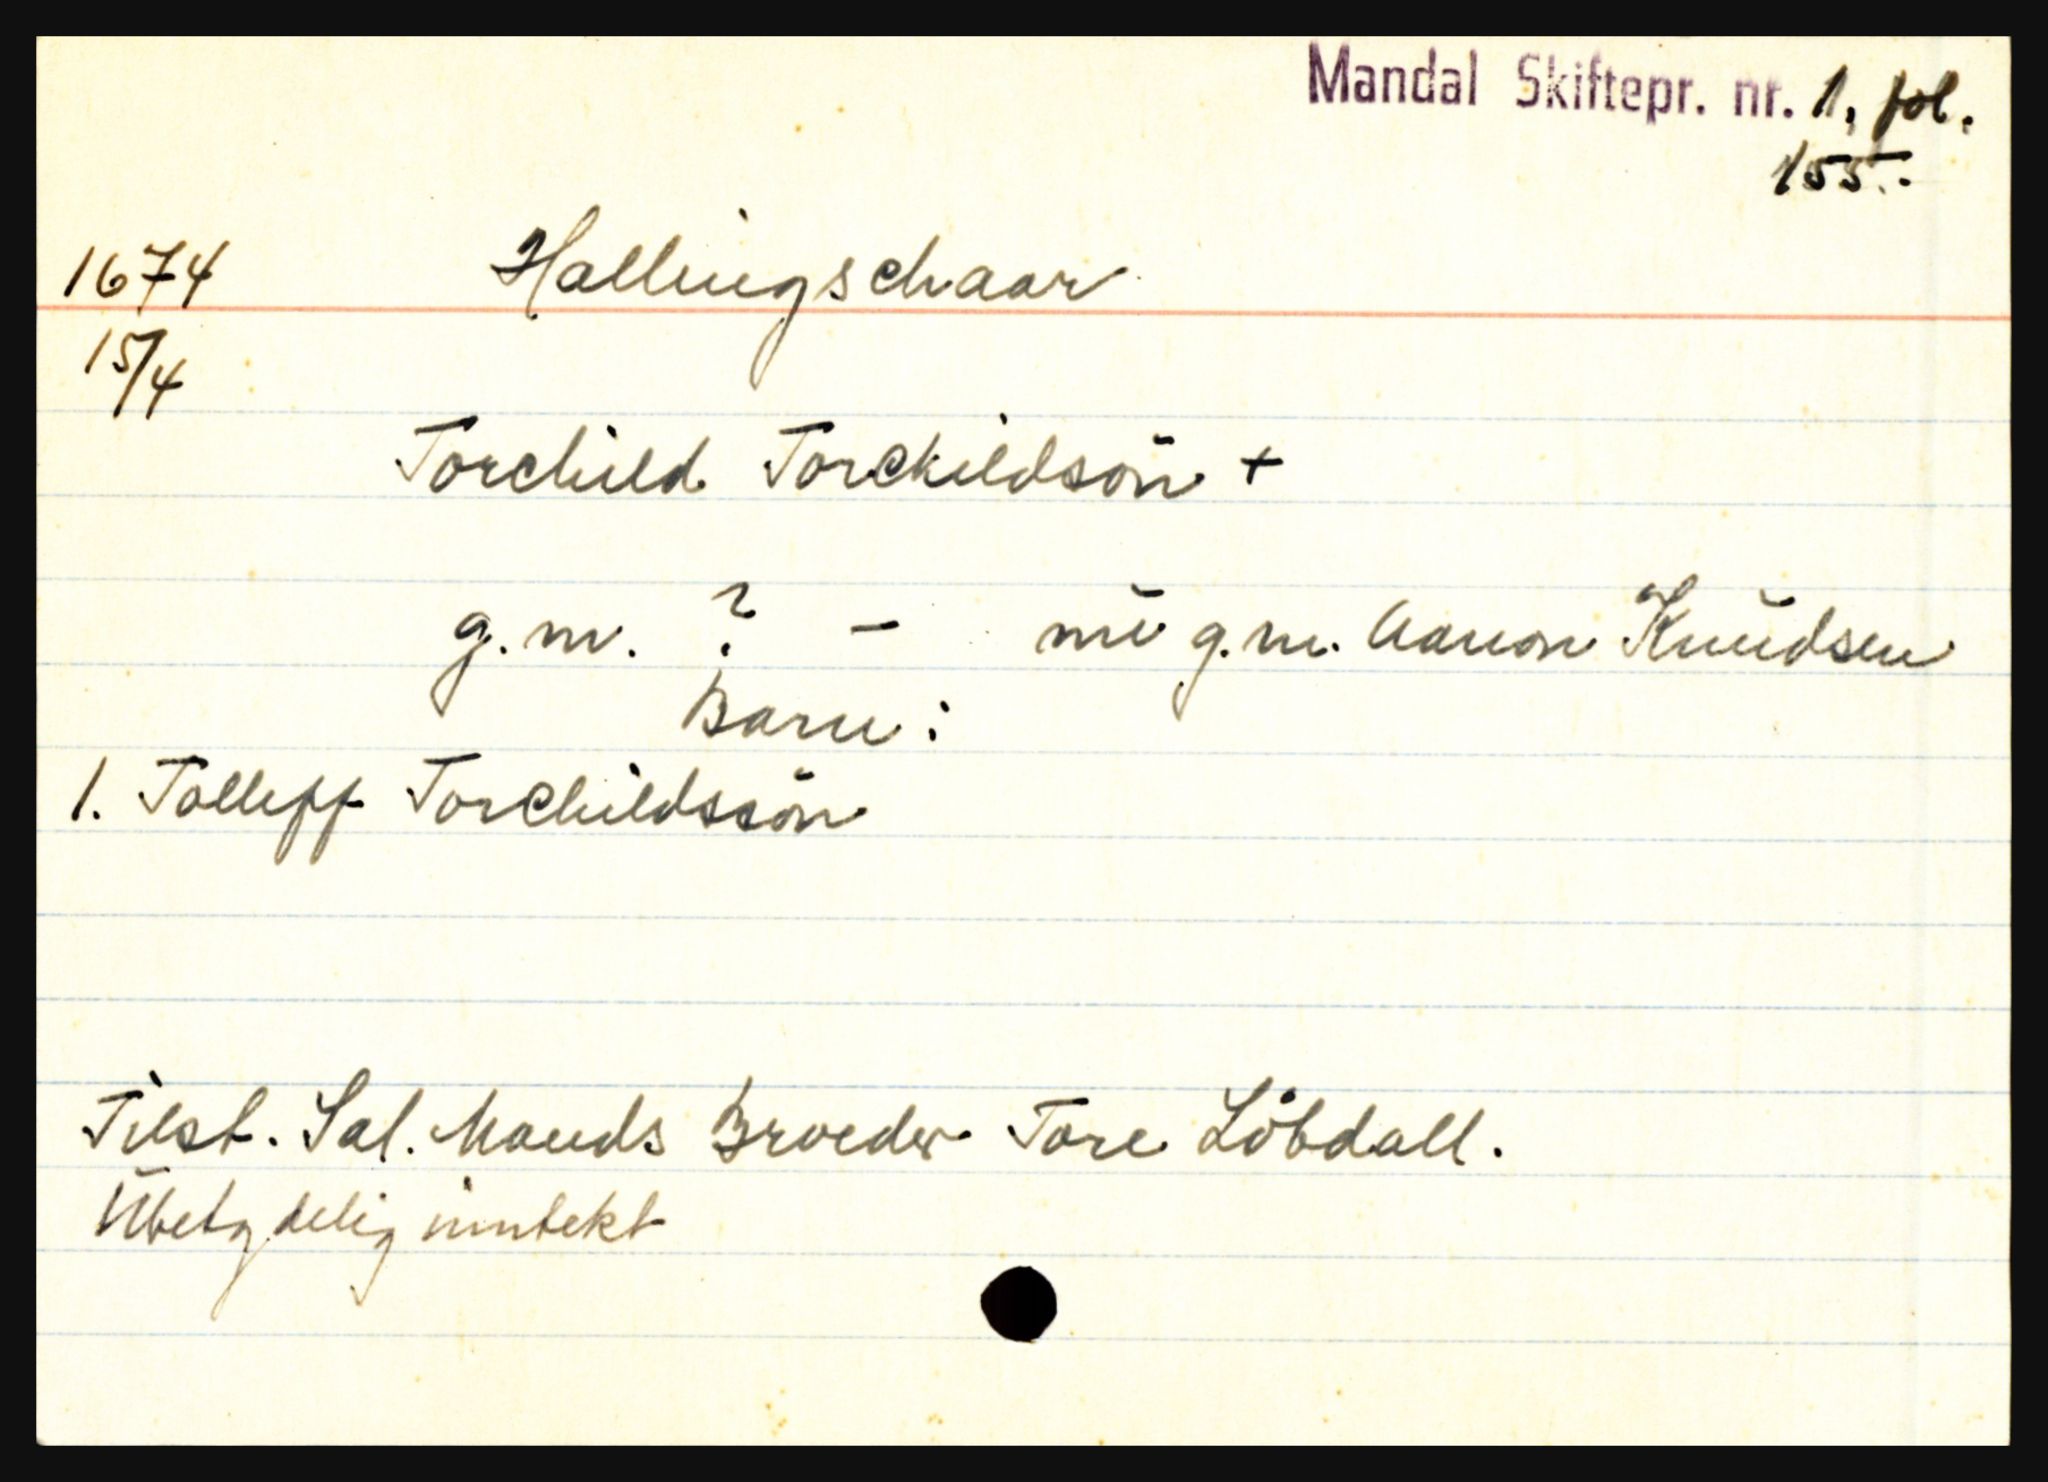 Mandal Skiftepr. nr. 1, fol.
155.
1674 Hallingschaar
15/4
Torchild Torckildsön +
g.m. ? - nū g.m. Aanon Knūdsen
Barn:
1. Tolleff Torchildssön
Tilst. Sal. Mands Broeder Tore Löbdall.
Ūbetydelig inntekt